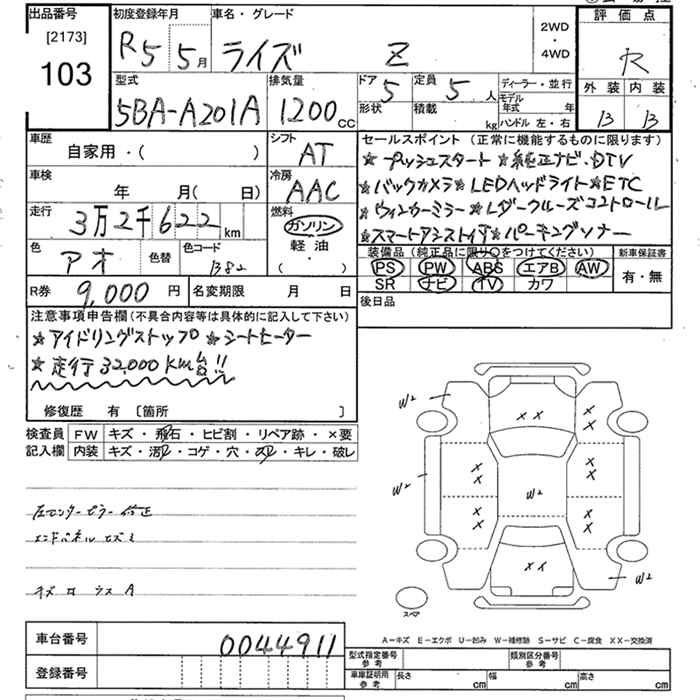 出品番号
[2173]
103
初度登録年月
R5 5月
車名・グレード
ライズ Z
2WD
・
4WD
評価点
R
外装 内装
B B
型式
5BA-A201A
排気量
1200cc
ドア
5
定員
5人
形状
積載
kg
ディーラー・並行
モデル年式 年
ハンドル 左・右
車歴
自家用・( )
シフト
AT
車検
年 月( 日)
冷房
AAC
走行
3万2千622km
燃料
ガソリン
軽油
・
( )
色
アオ
色替
色コード
B82
R券
9,000円
名変期限 月 日
セールスポイント(正常に機能するものに限ります)
★プッシュスタート★純正ナビ・DTV
★バックカメラ★LEDヘッドライト★ETC
★ウィンカーミラー★レダークルーズコントロール
★スマートアシスト付★パーキングソナー
装備品(純正品に限り○をつけてください)
PS PW ABS エアB AW
SR ナビ TV カワ
新車保証書
有・無
後日品
注意事項申告欄(不具合内容等は具体的に記入して下さい)
★アイドリングストップ ★シートヒーター
★走行32,000KM台!!
修復歴 有 [箇所 ]
検査員記入欄
FW キズ・飛石・ヒビ割・リペア跡・×要
内装 キズ・汚れ・コゲ・穴・スレ・キレ・破レ
左センターピラー修正
エンドパネル
A
W2
W2
XX
X
X
X
X
X
X
W2
X
X
X
X
XX
W2
スペア
A-キズ E-エクボ U-凹み W-補修跡 S-サビ C-腐食 XX-交換済
車台番号
0044911
登録番号
型式指定番号
参考
類別区分番号
参考
車庫証明用
参考
長さ cm
幅 cm
高さ cm